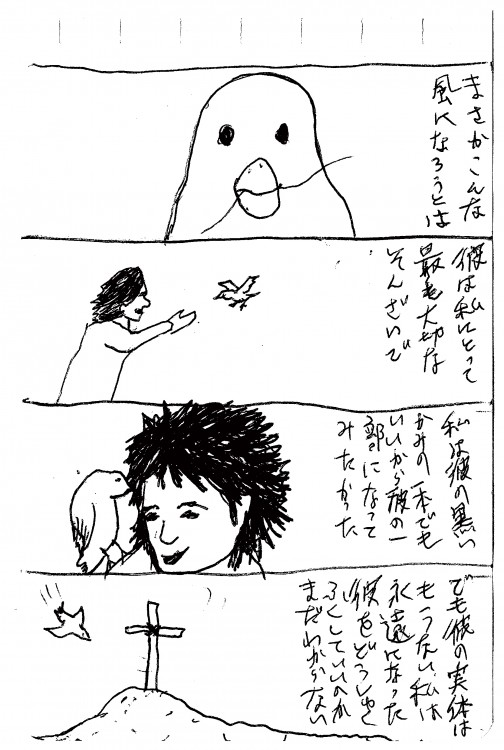 まさかこんな
風になろうとは
彼は私にとって
最も大切な
そんざいで
私は彼の黒い
かみの一本でも
いいから彼の一
部になって
みたかった
でも彼の実体は
もうない私は
永遠になった
彼をどうしゅく
ふくしていいのか
まだわからない